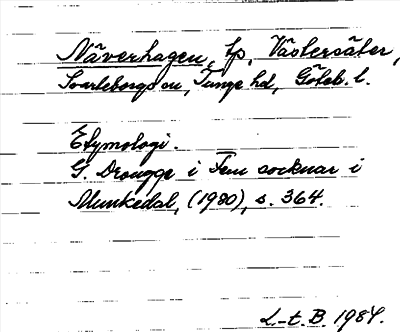 Näverhagen, tp, Västersäter,
Svarteborgs sn, Tunge hd, Göteb. l.
Etymologi.
G. Drougge i Fem socknar i
Munkedal, (1980), s. 364.
L-t. B. 1984.